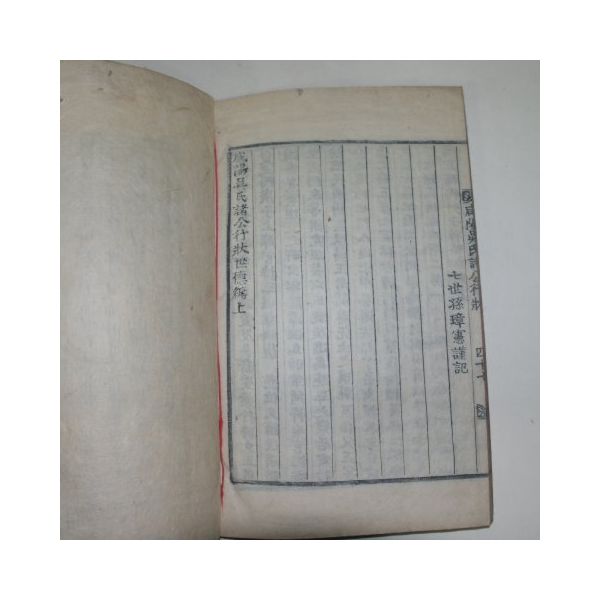 咸陽吳氏諸公行狀
四十七
七世孫璋憲謹記
咸陽吳氏諸公行狀世德編上